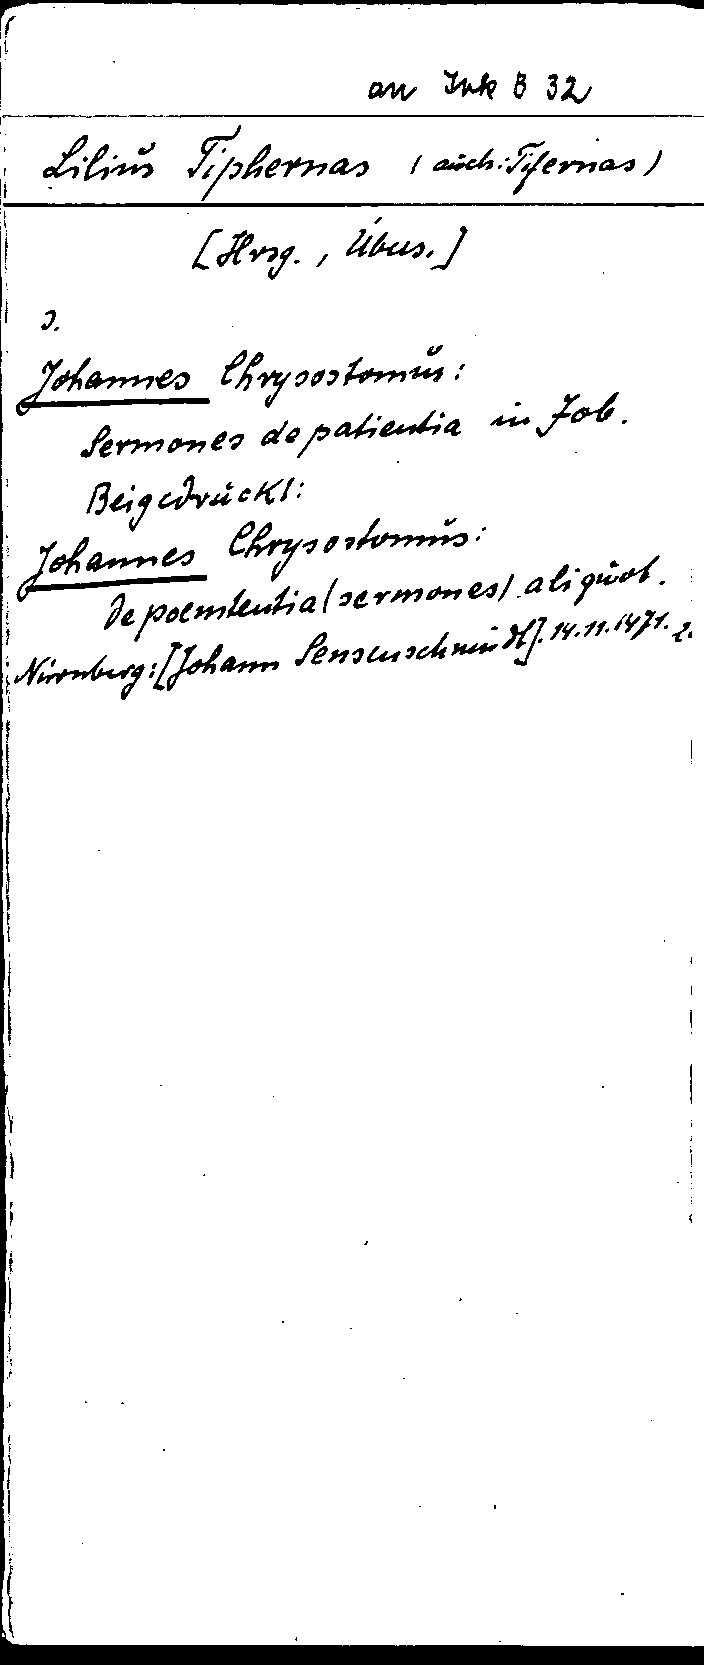 an Ink B 32
Lilius Tiphernas (auch: Tifernas)
[Hrsg., Übers.]
s.
Johannes Chrysostomus:
Sermones de patientia in Job.
Beigedruckt:
Johannes Chrysostomus:
De poenitentia (sermones) aliquot.
Nürnberg: [Johann Sensenschmidt]. 14.11.1471. 2.